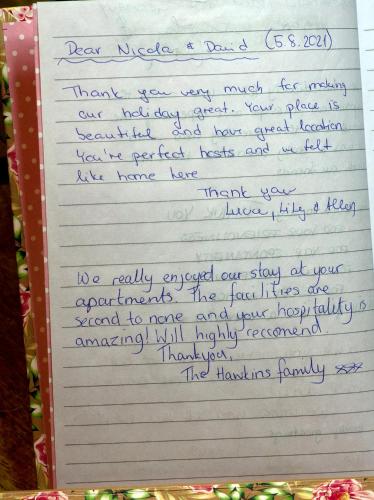 Dear Nicola & David (5.8.2021)
Thank you very much for making
our holiday great. Your place is
beautiful and have great location
You're perfect hosts and we felt
like home here
Thank you
Lucie, Lily & Allen
We really enjoyed our stay at your
apartments. The facilities are
second to none and your hospitality is
amazing! Will highly reccomend
Thankyou,
The Hawkins family